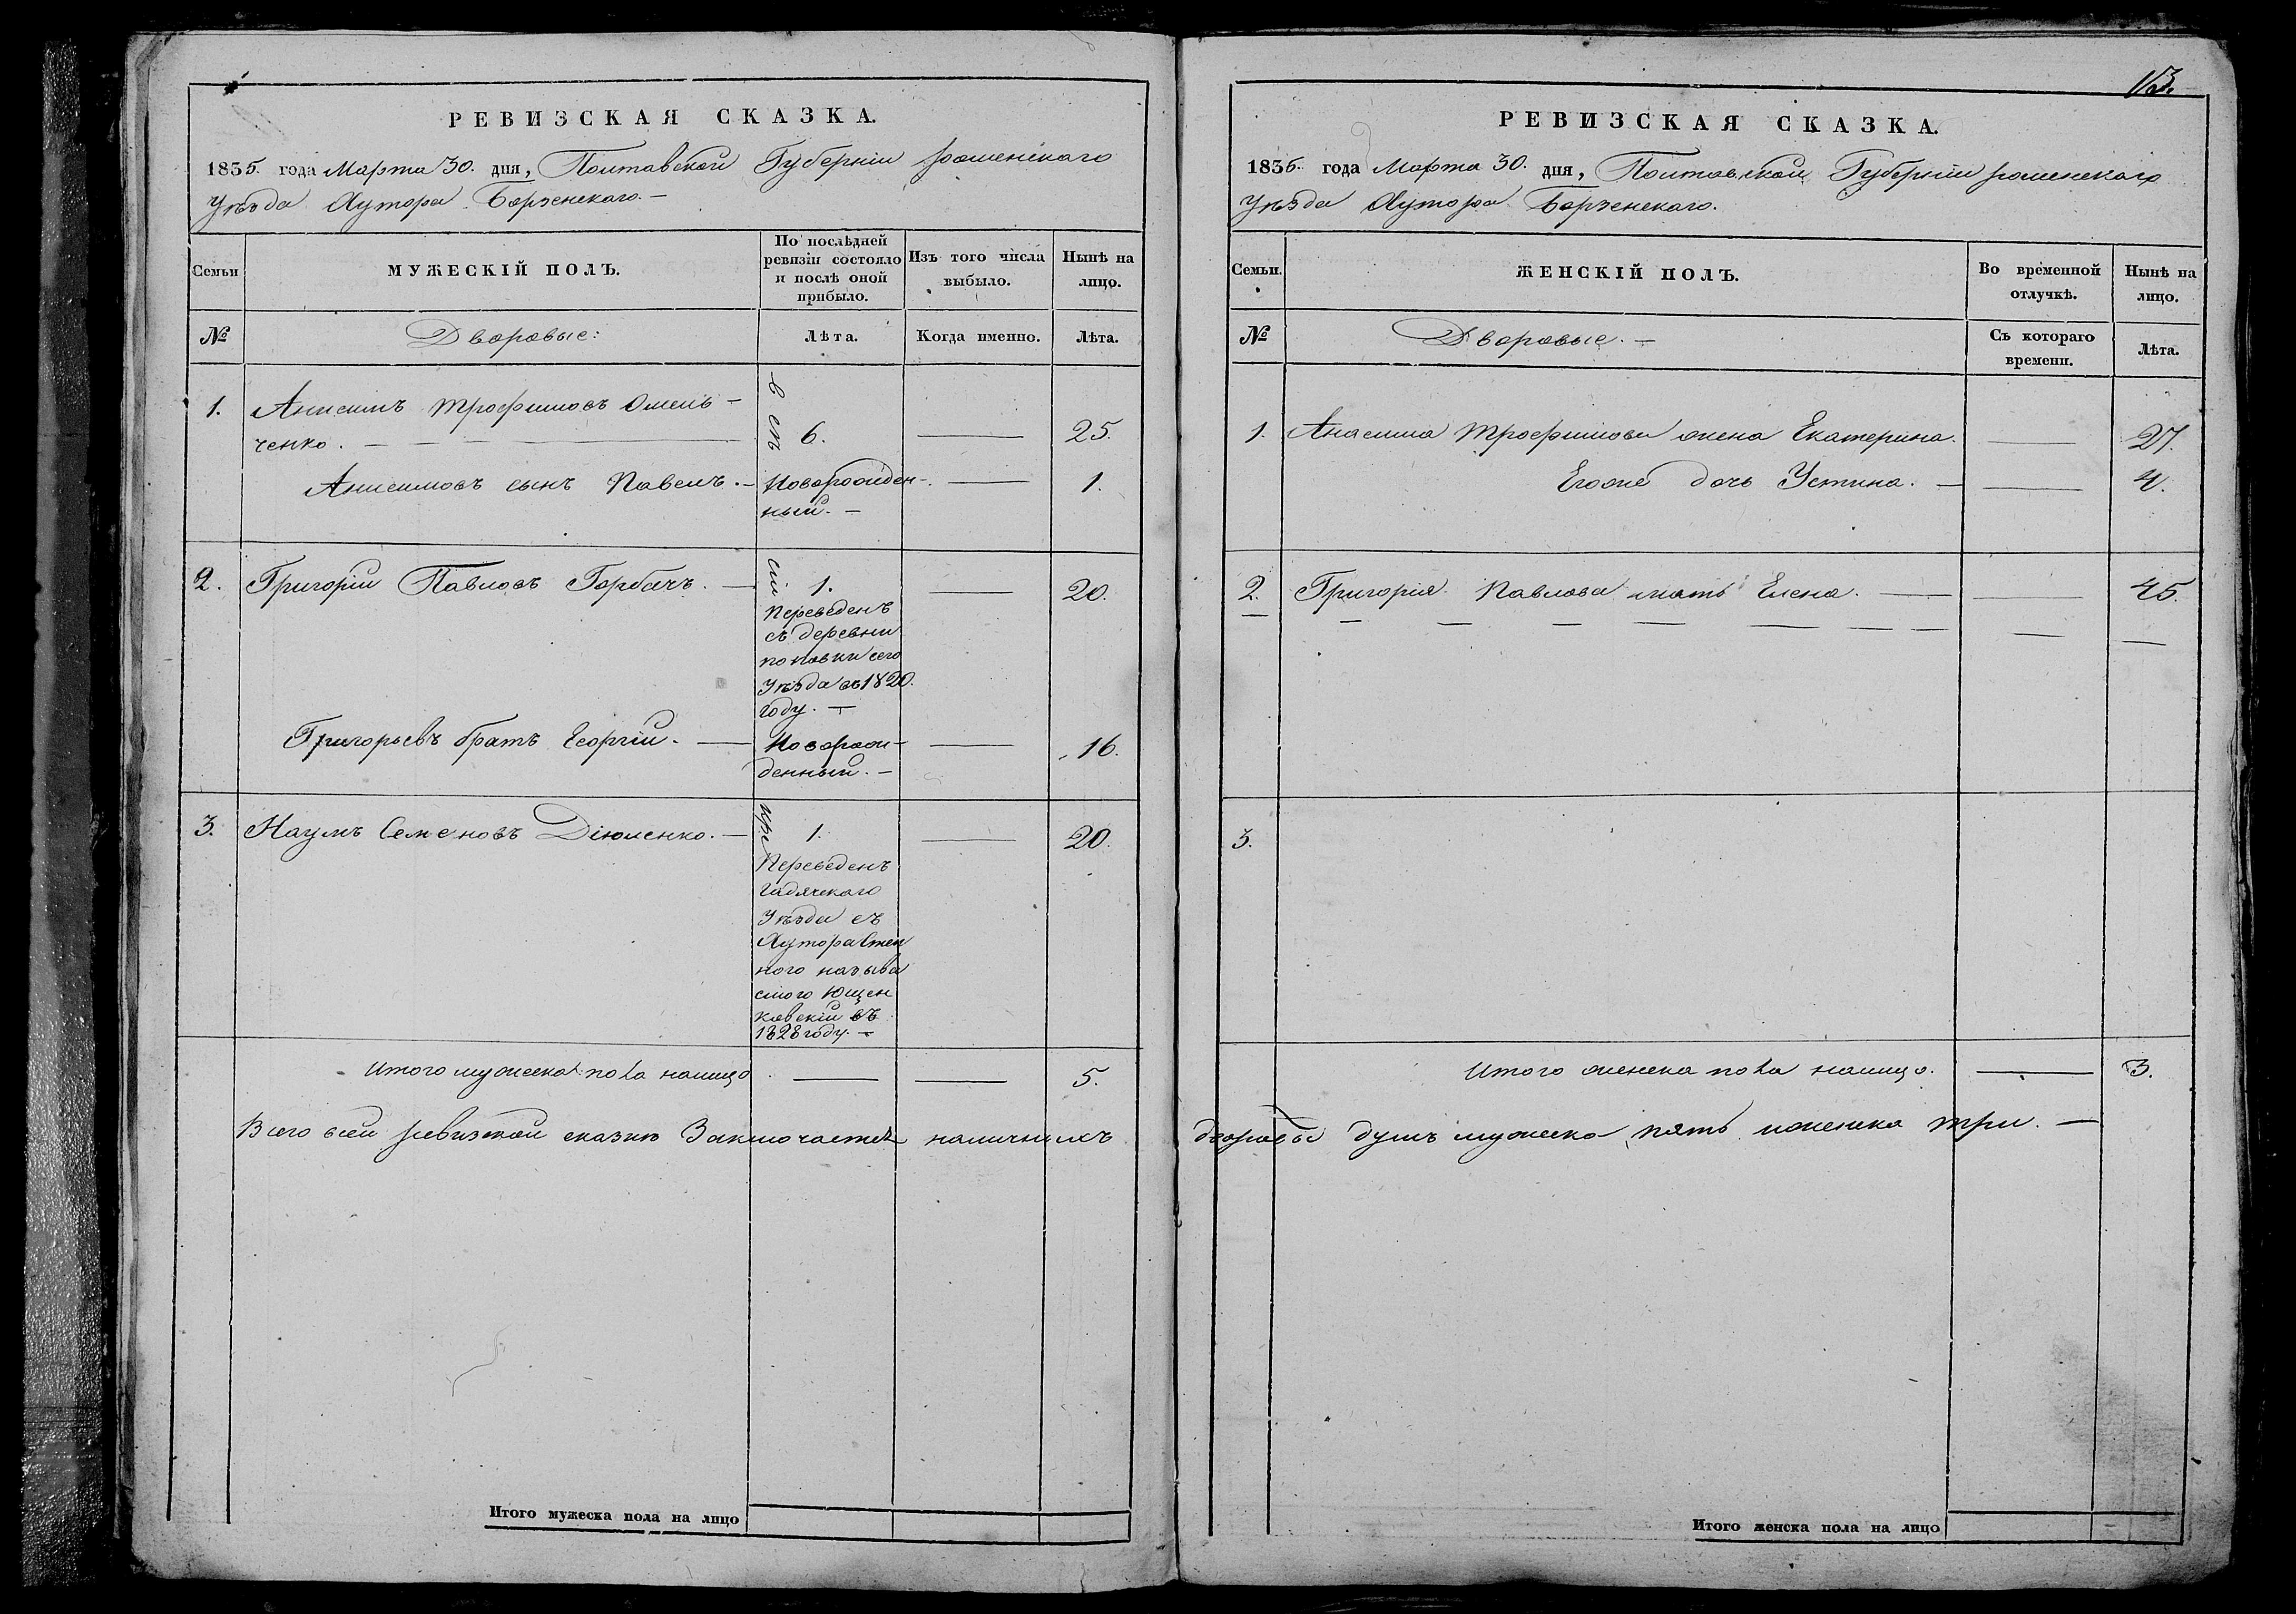 РЕВИЗСКАЯ СКАЗКА.
1835. года Марта 30. дня, Полтавской Губерніи роменскаго
Уѣзда Хутора Борзенскаго. —
Семьи
МУЖЕСКІЙ ПОЛЪ.
По послѣдней
ревизіи состояло
и послѣ оной
прибыло.
Изъ того числа
выбыло.
Нынѣ на
лицо.
№
Дворовые:
Лѣта.
Когда именно.
Лѣта.
1. Анисимъ Трофимовъ Омель-
ченко. — 6. — 25.
Анисимовъ сынъ Павелъ. — Новорожден- — 1.
ный. —
2. Григорій Павловъ Горбачъ. — 1. — 20.
Переведенъ
съ деревни
поповки сего
Уѣзда въ 1820.
году. —
Григорьевъ братъ Георгій. —Новорож- — 16.
денный. —
3. Наумъ Семеновъ Діюленко. — 1. — 20.
Переведенъ
Гадячскаго
Уѣзда съ
Хутора Степ
ного называ
емого Ющен
ковскій въ
1828 году. —
Итого мужеска пола налицо — — 5.
Всего всей ревизкой сказкѣ Заключается наличныхъ
Итого мужеска пола на лицо
13.
РЕВИЗСКАЯ СКАЗКА.
1835. года Марта 30. дня, Полтавской Губерніи роменскаго
Уѣзда Хутора Борзенскаго.
Семьи.
ЖЕНСКІЙ ПОЛЪ.
Во временной
отлучкѣ.
Нынѣ на
лицо.
№
Дворовые. —
Съ котораго
времени.
Лѣта.
1. Анисима Трофимова жена Екатерина. — 27.
Егоже дочь Устина. — — 4.
2. Григорія Павлова мать Елена. — — 45.
3.
Итого женска пола налицо. — 3.
дворовые душъ мужеска пять иженска три. —
Итого женска пола на лицо